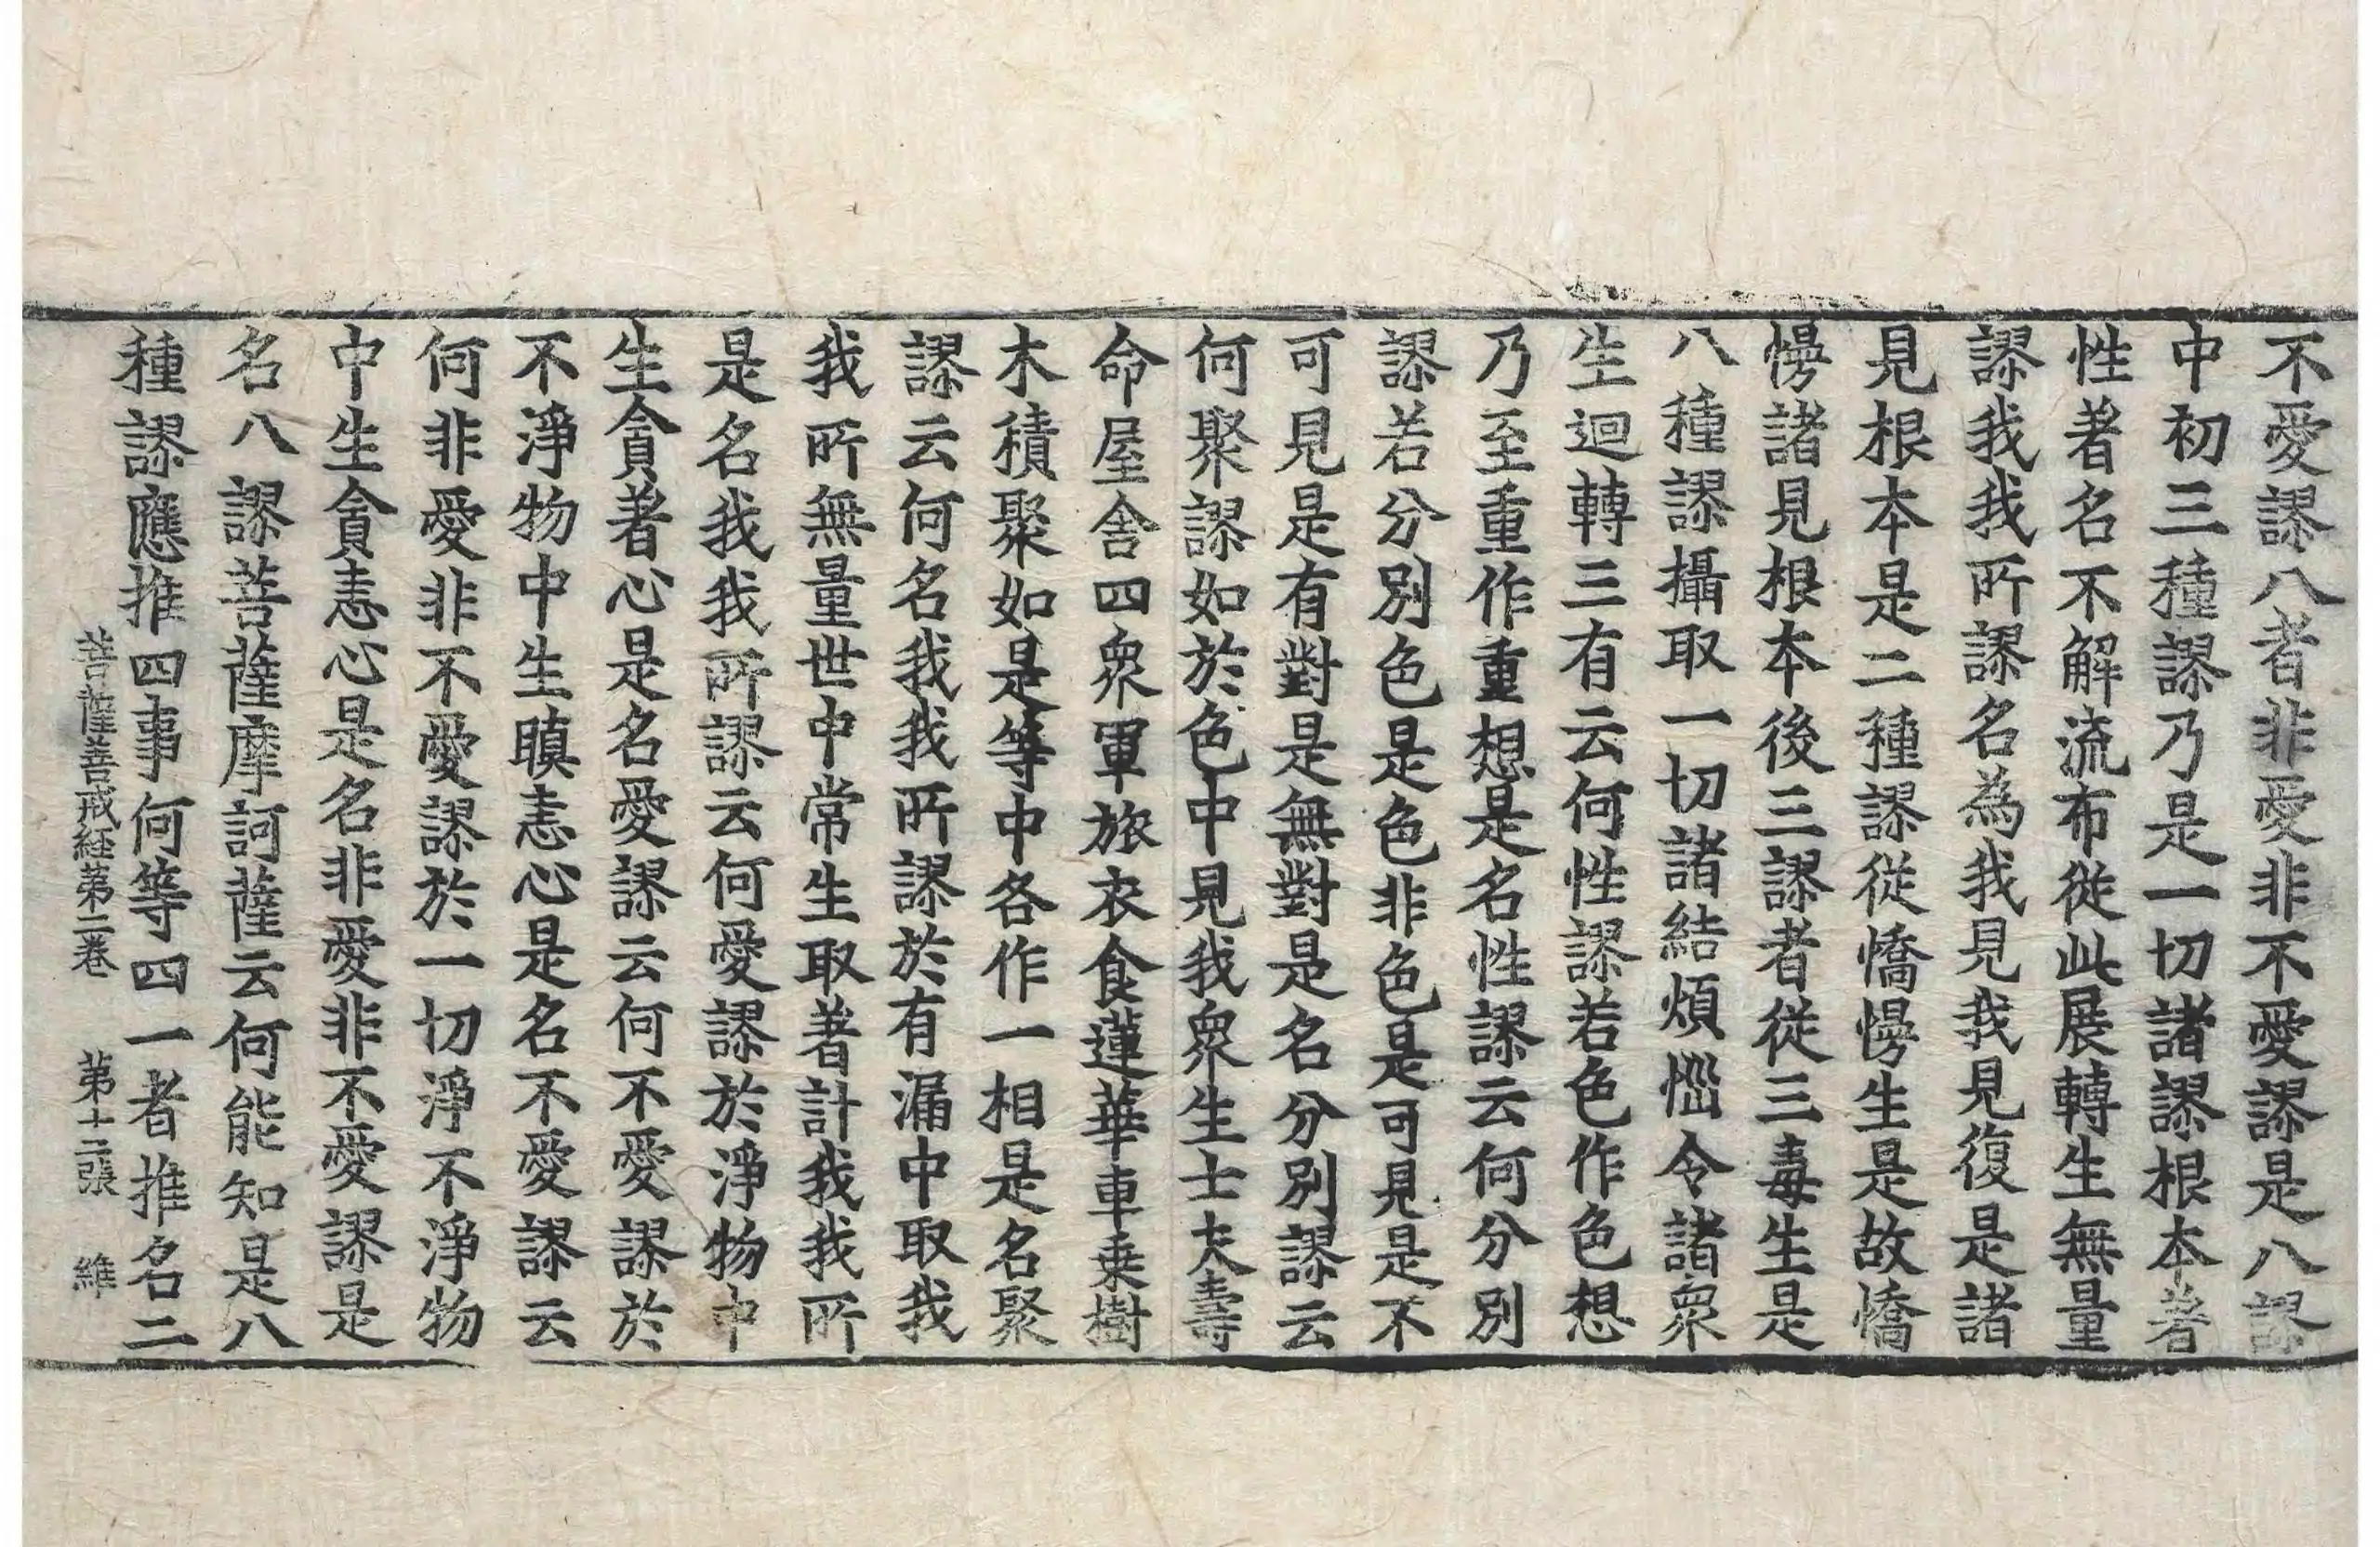 不愛謬八者非愛非不愛謬是八謬
中初三種謬乃是一切諸謬根本著
性著名不解流布從此展轉生無量
謬我我所謬名為我見我見復是諸
見根本是二種謬從憍慢生是故憍
慢諸見根本後三謬者從三毒生是
八種謬攝取一切諸結煩惱令諸衆
生迴轉三有云何性謬若色作色想
乃至重作重想是名性謬云何分別
謬若分別色是色非色是可見是不
可見是有對是無對是名分別謬云
何聚謬如於色中見我衆生士夫壽
命屋舍四衆軍旅衣食蓮華車乗樹
木積聚如是等中各作一相是名聚
謬云何名我我所謬於有漏中取我
我所無量世中常生取著計我我所
是名我我所謬云何愛謬於淨物中
生貪著心是名愛謬云何不愛謬於
不淨物中生瞋恚心是名不愛謬云
何非愛非不愛謬於一切淨不淨物
中生貪恚心是名非愛非不愛謬是
名八謬菩薩摩訶薩云何能知是八
種謬應推四事何等四一者推名二
菩薩善戒経苐二卷 苐十二張 維